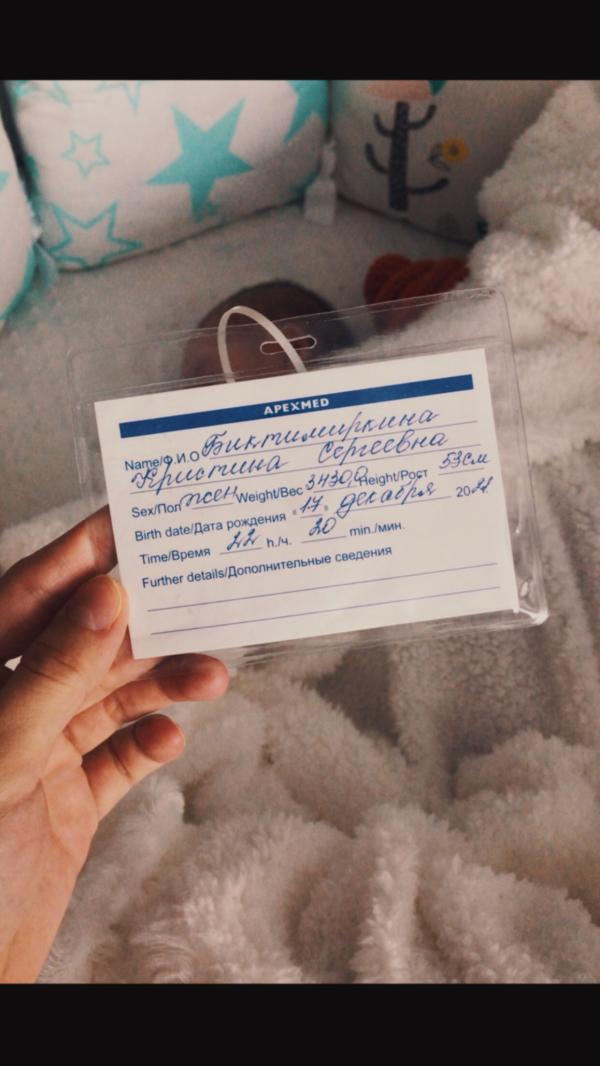 APEXMED
Name/Ф.И.О Биктимиркина
Кристина Сергеевна
Sex/Пол жен Weight/Вес 3430,0 Height/Рост 53см
Birth date/Дата рождения "17" декабря 2021
Time/Время 22 h./ч. 20 min./мин.
Further details/Дополнительные сведения